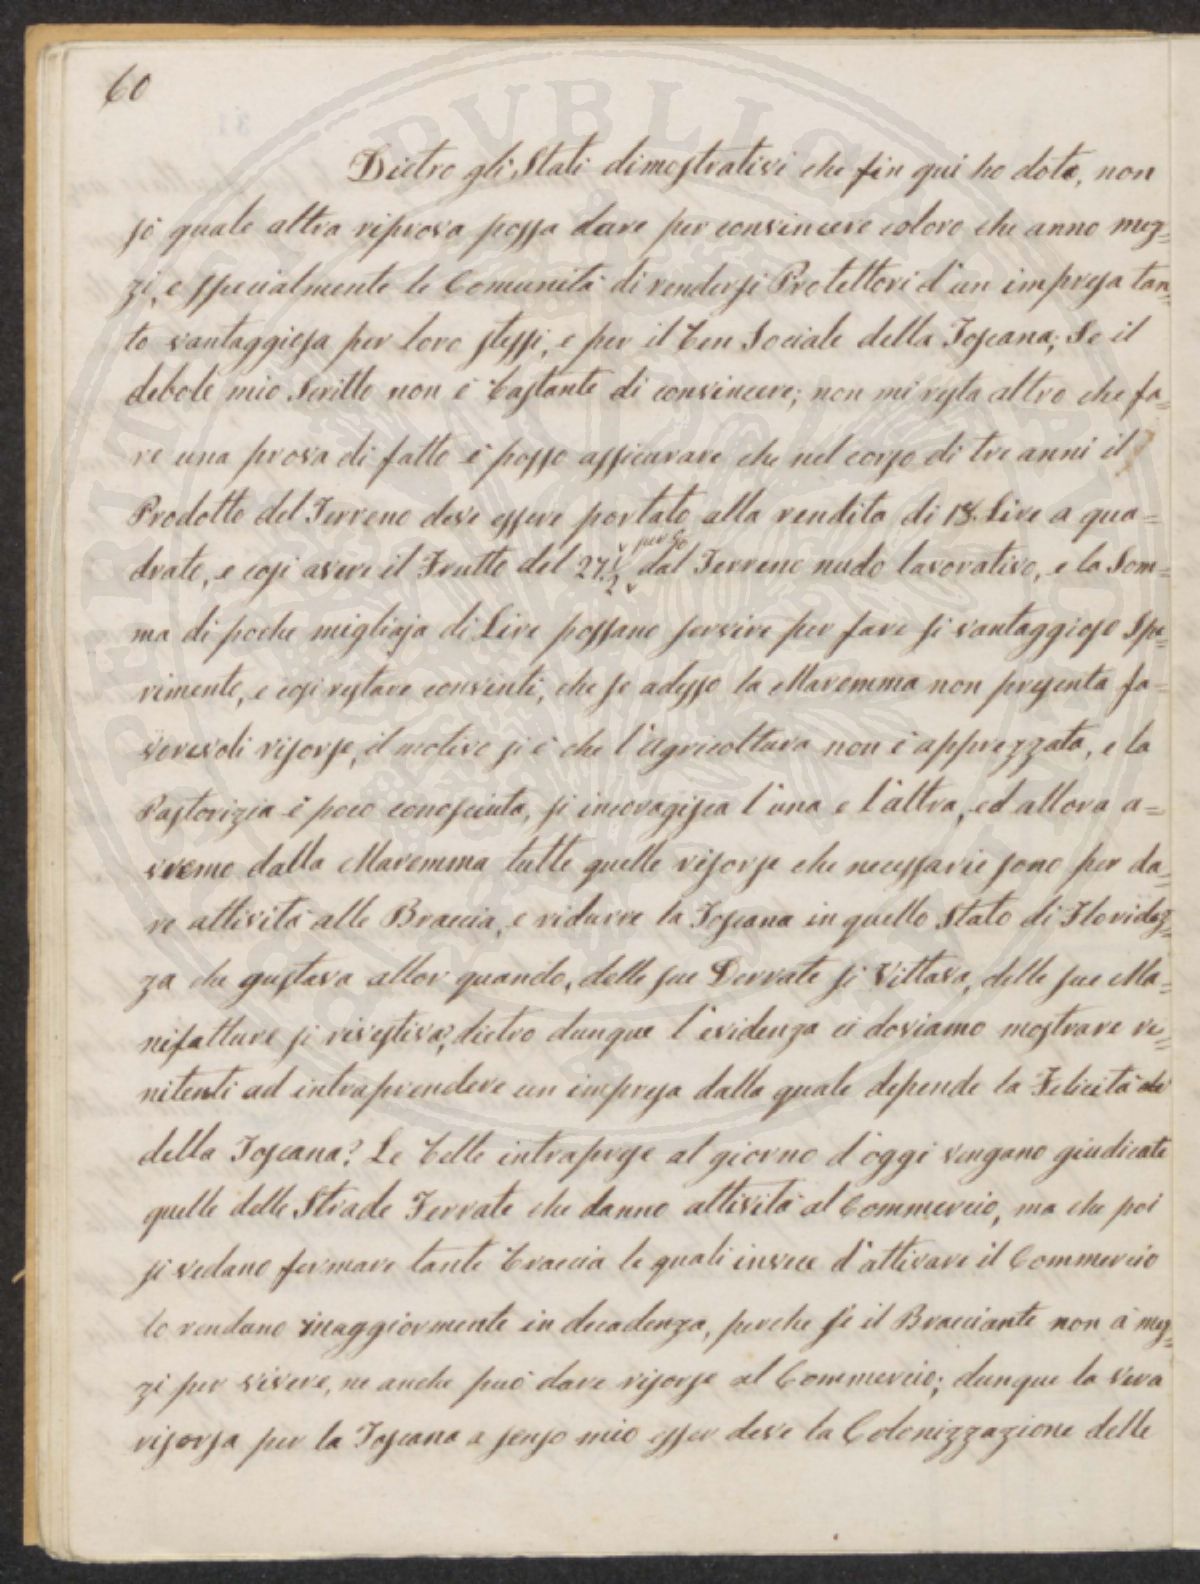 60
Dietro gli Stati dimostrativi che fin qui ho dote, non
sò quale altra riprova possa dare per convincere coloro che anno mez=
zi, e specialmente le Comunità di rendersi Protettori d'un impresa tan=
to vantaggiosa per loro stessi, e per il ben Sociale della Toscana; Se il
debole mio Scritto non è bastante di convincere; non mi resta altro che fa=
re una prova di fatto è posso assicurare che nel corso di tre anni il
Prodotto del Terreno deve essere portato alla rendita di 18. Lire a qua=
drato, e così avere il Frutto del 27 1/2 per % dal Terreno nudo lavorativo, e la Som=
ma di poche migliaja di Lire possano servire per fare si vantaggioso Spe=
rimento, e così restare convinti, che se adesso la Maremma non presenta fa=
vorevoli risorse, il motivo si è che l'agricoltura non è apprezzata, e la
Pastorizia è poco conosciuta, si incoragisca l'una e l'altra, ed allora a=
vremo dalla Maremma tutte quelle risorse che necessarie sono per da=
re attività alle Braccia, e ridurre la Toscana in quello Stato di Floridez=
za che gustava allor quando, delle sue Derrate si Vittava, delle sue Ma=
nifatture si rivestiva; dietro dunque l'evidenza ci doviamo mostrare re=
nitenti ad intraprendere un impresa dalla quale depende la Felicità
della Toscana? Le belle intraprese al giorno d'oggi vengano giudicate
quelle delle Strade Ferrate che danno attività al Commercio, ma che poi
si vedano fermare tante braccia le quali invece d'attivare il Commercio
lo rendano maggiormente in decadenza, perche sè il Bracciante non à mez=
zi per vivere, ne anche può dare risorse al Commercio; dunque la vera
risorsa per la Toscana a senso mio esser deve la Colonizzazione delle